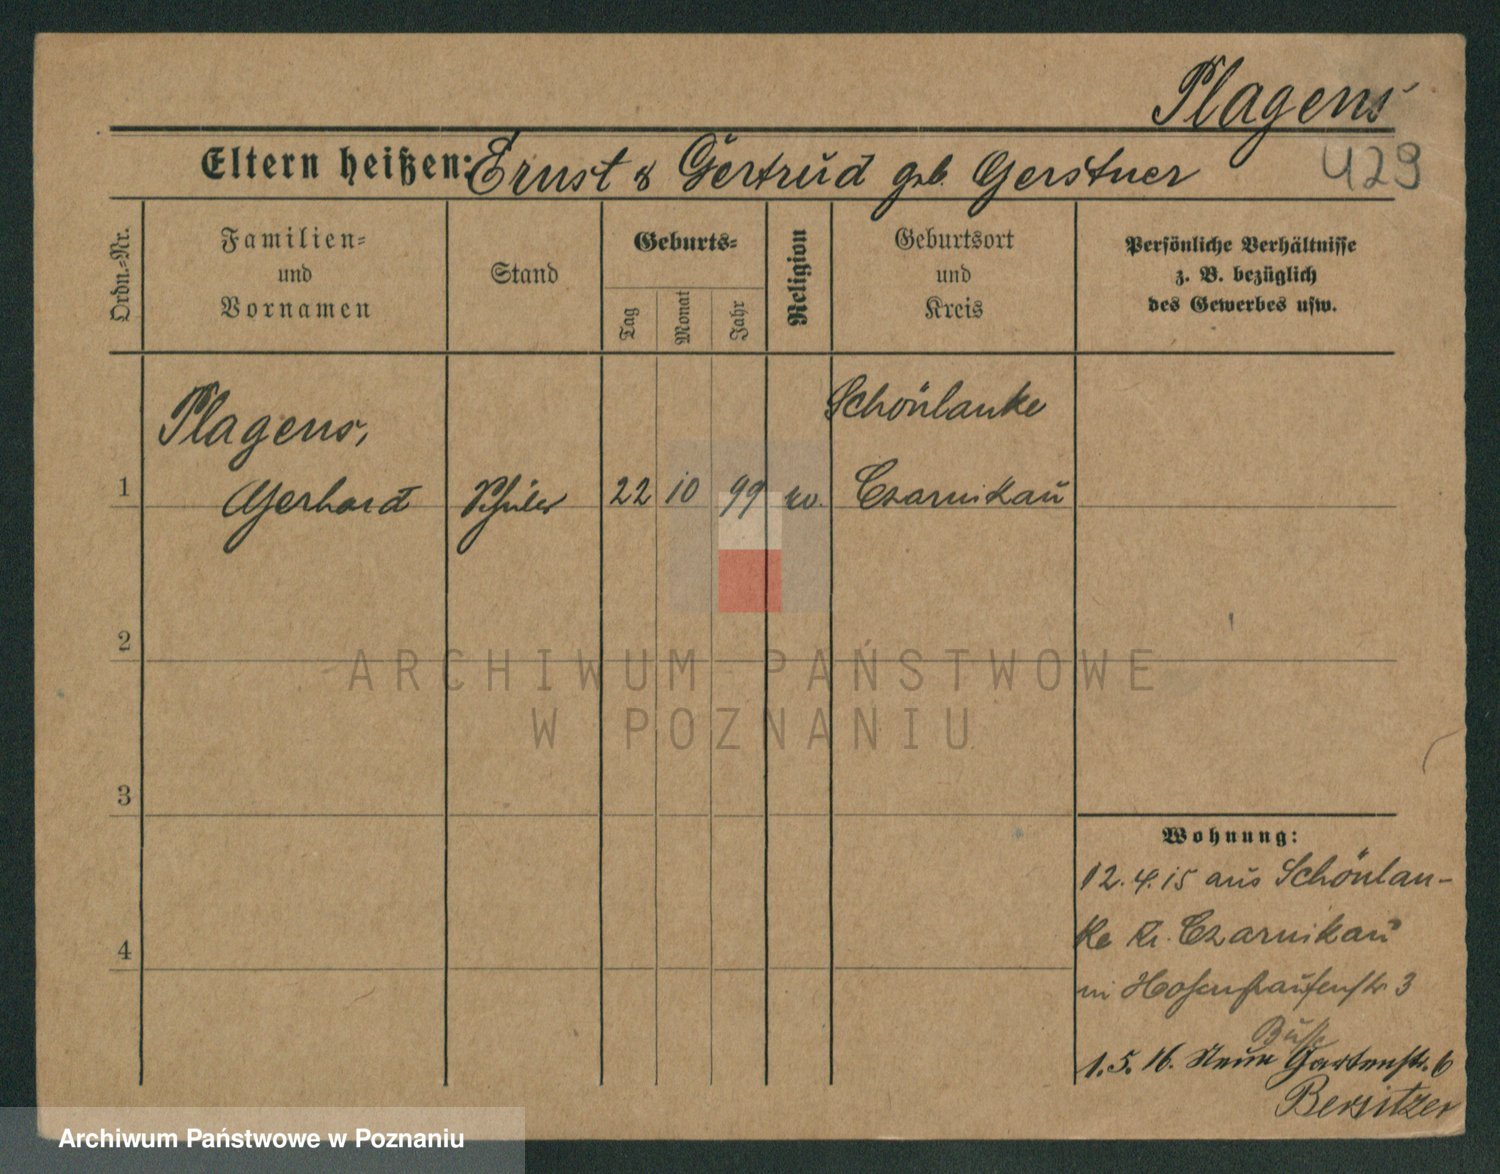 Plagens
Eltern heißen: Ernst & Gertrud geb. Gerstner
429
Ordn.=Nr.
Familien=
und
Vornamen
Stand
Geburts=
Tag
Monat
Jahr
Religion
Geburtsort
und
Kreis
Persönliche Verhältnisse
z. B. bezüglich
des Gewerbes usw.
Plagens,
Schönlanke
1 Gerhard Schüler 22 10 99 ev. Czarnikau
2
ARCHIWUM PAŃSTWOWE
W POZNANIU
3
Wohnung:
12.4.15 aus Schönlan-
4
ke Kr. Czarnikau
Hohenstaufenstr 3
Busse
1.5.16. Neue Gartenstr. 6
Bersitzer
Archiwum Państwowe w Poznaniu